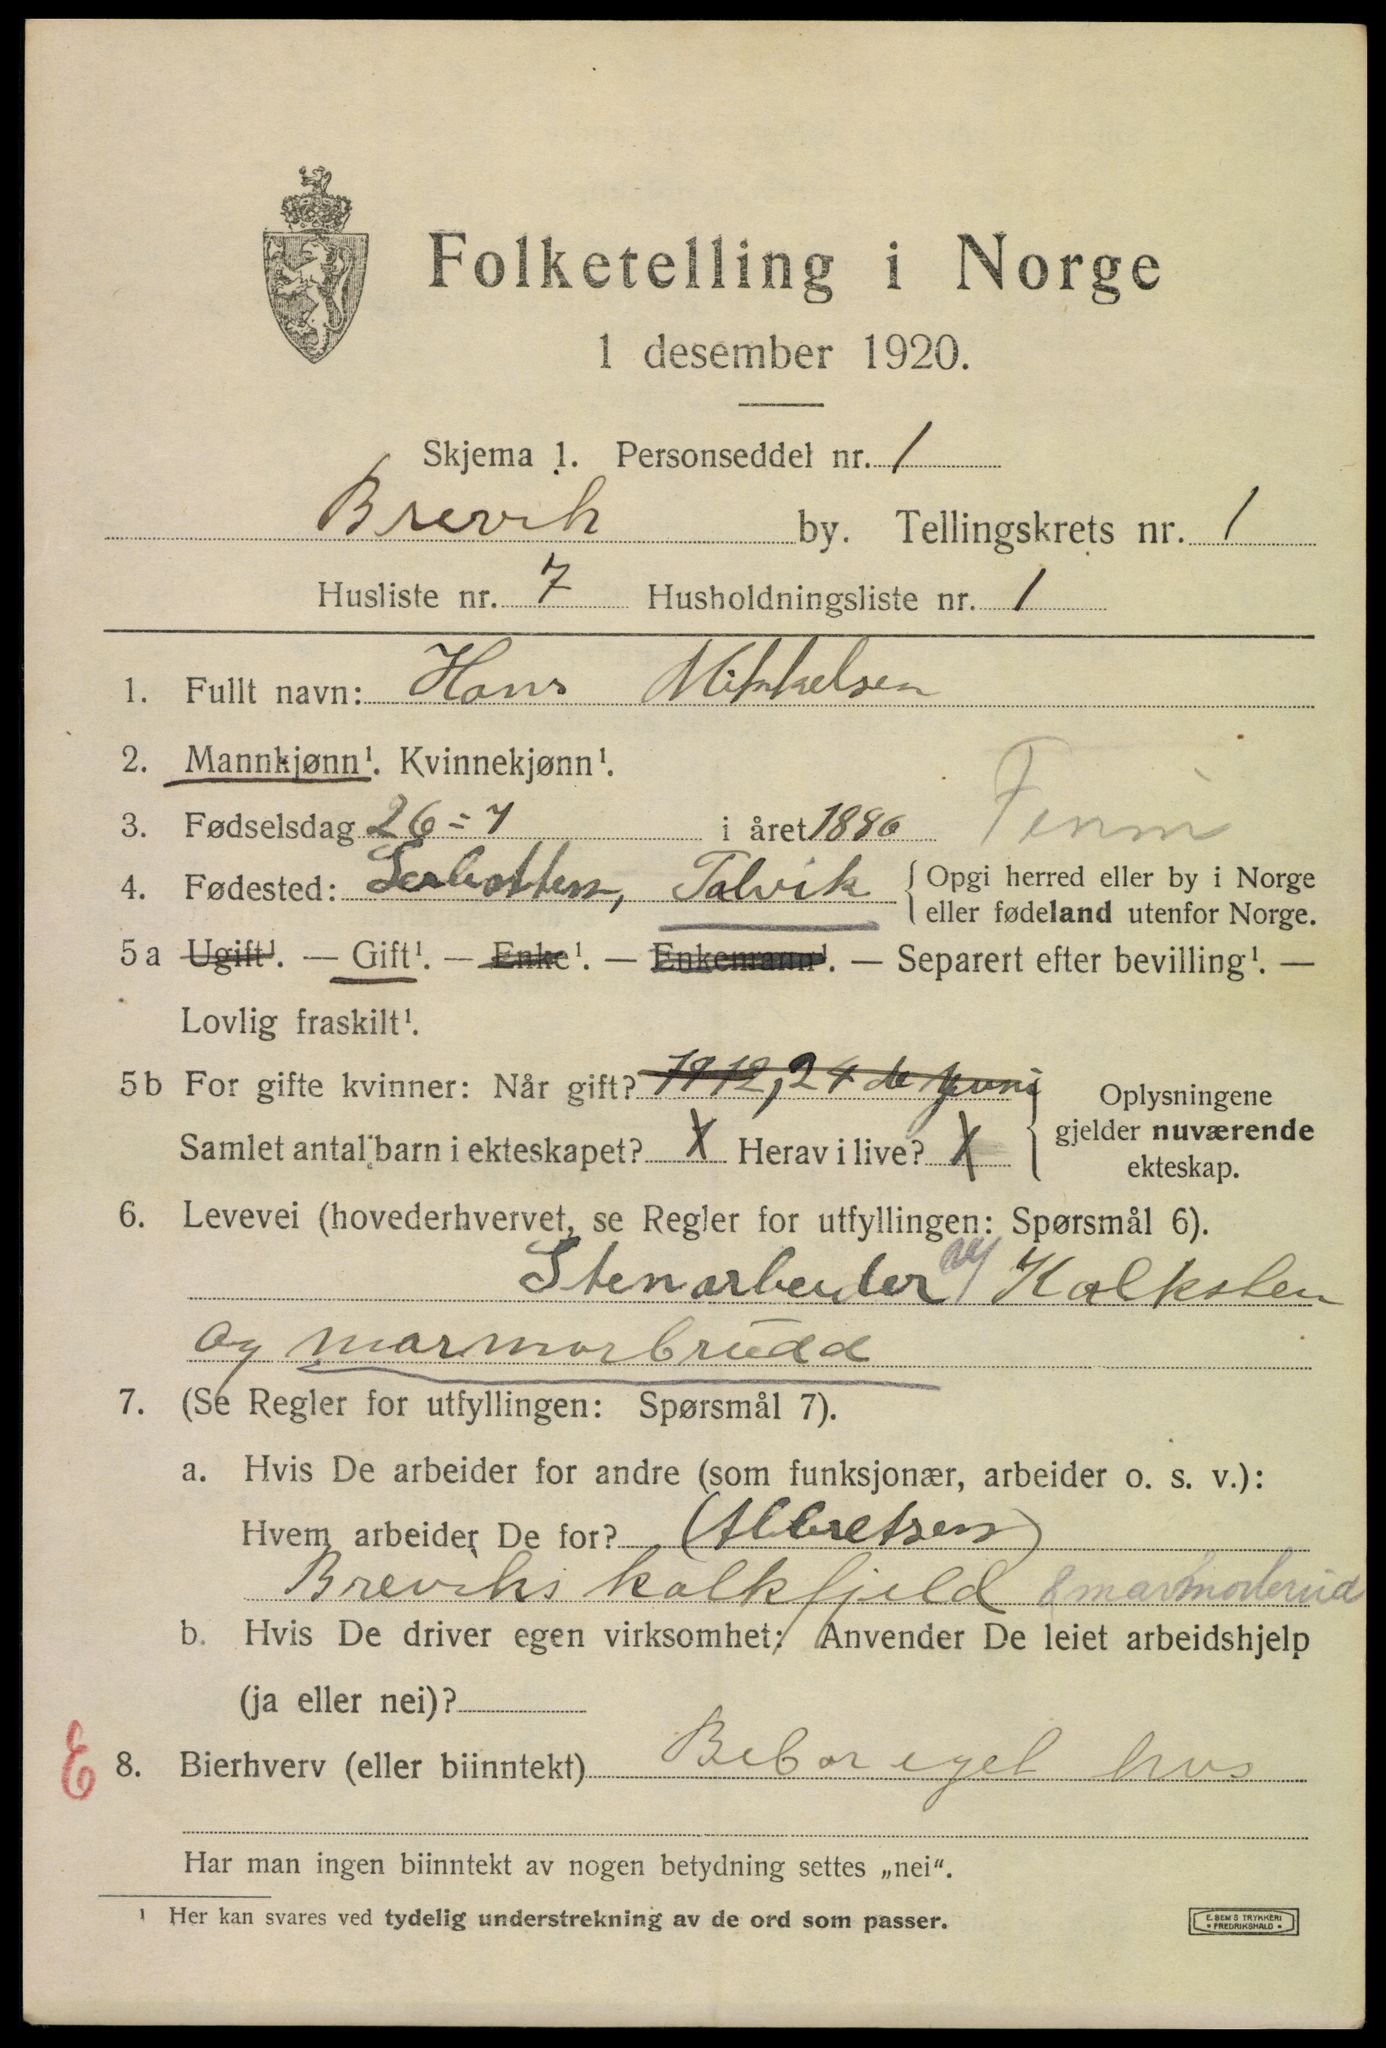 Folketelling i Norge
1 desember 1920.
Skjema 1. Personseddel nr. 1
Brevik by. Tellingskrets nr. 1
Husliste nr. 7 Husholdningsliste nr. 1
1. Fullt navn: Hans Mikkelsen
2. Mannkjønn¹. Kvinnekjønn¹.
3. Fødselsdag 26 = 7 i året 1886
4. Fødested: Talvik { Opgi herred eller by i Norge
eller fødeland utenfor Norge.
5 a Ugift¹. — Gift¹. — Enke¹. — Enkemann¹. — Separert efter bevilling¹. —
Lovlig fraskilt¹.
5 b For gifte kvinner: Når gift? 1912, 24 de juni
Samlet antal barn i ekteskapet? X Herav i live? X
Oplysningene
gjelder nuværende
ekteskap.
6. Levevei (hovederhvervet, se Regler for utfyllingen: Spørsmål 6).
Stenarbeider av Kalksten
og marmorbrudd
7. (Se Regler for utfyllingen: Spørsmål 7).
a. Hvis De arbeider for andre (som funksjonær, arbeider o. s. v.):
Hvem arbeider De for? (Albretsen)
Breviks kalkfjeld & marmorbrud
b. Hvis De driver egen virksomhet: Anvender De leiet arbeidshjelp
(ja eller nei)?
E 8. Bierhverv (eller biinntekt) Bebor eget hus
Har man ingen biinntekt av nogen betydning settes „nei“.
¹ Her kan svares ved tydelig understrekning av de ord som passer.
E. SEM'S TRYKKERI
FREDRIKSHALD